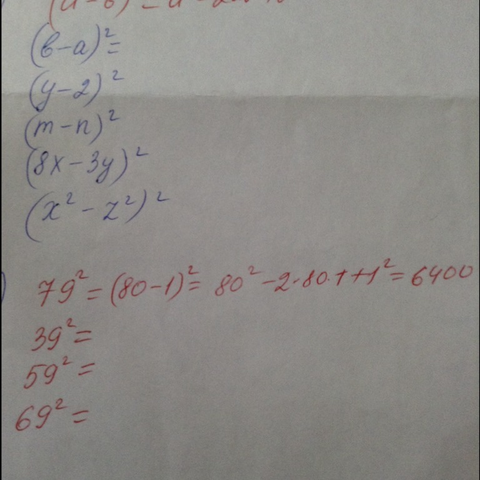 (a-в)² = a²
(в-a)²=
(y-2)²
(m-n)²
(8x-3y)²
(x²-z²)²
79²=(80-1)²= 80²-2·80·1+1²=6400
39²=
59²=
69²=